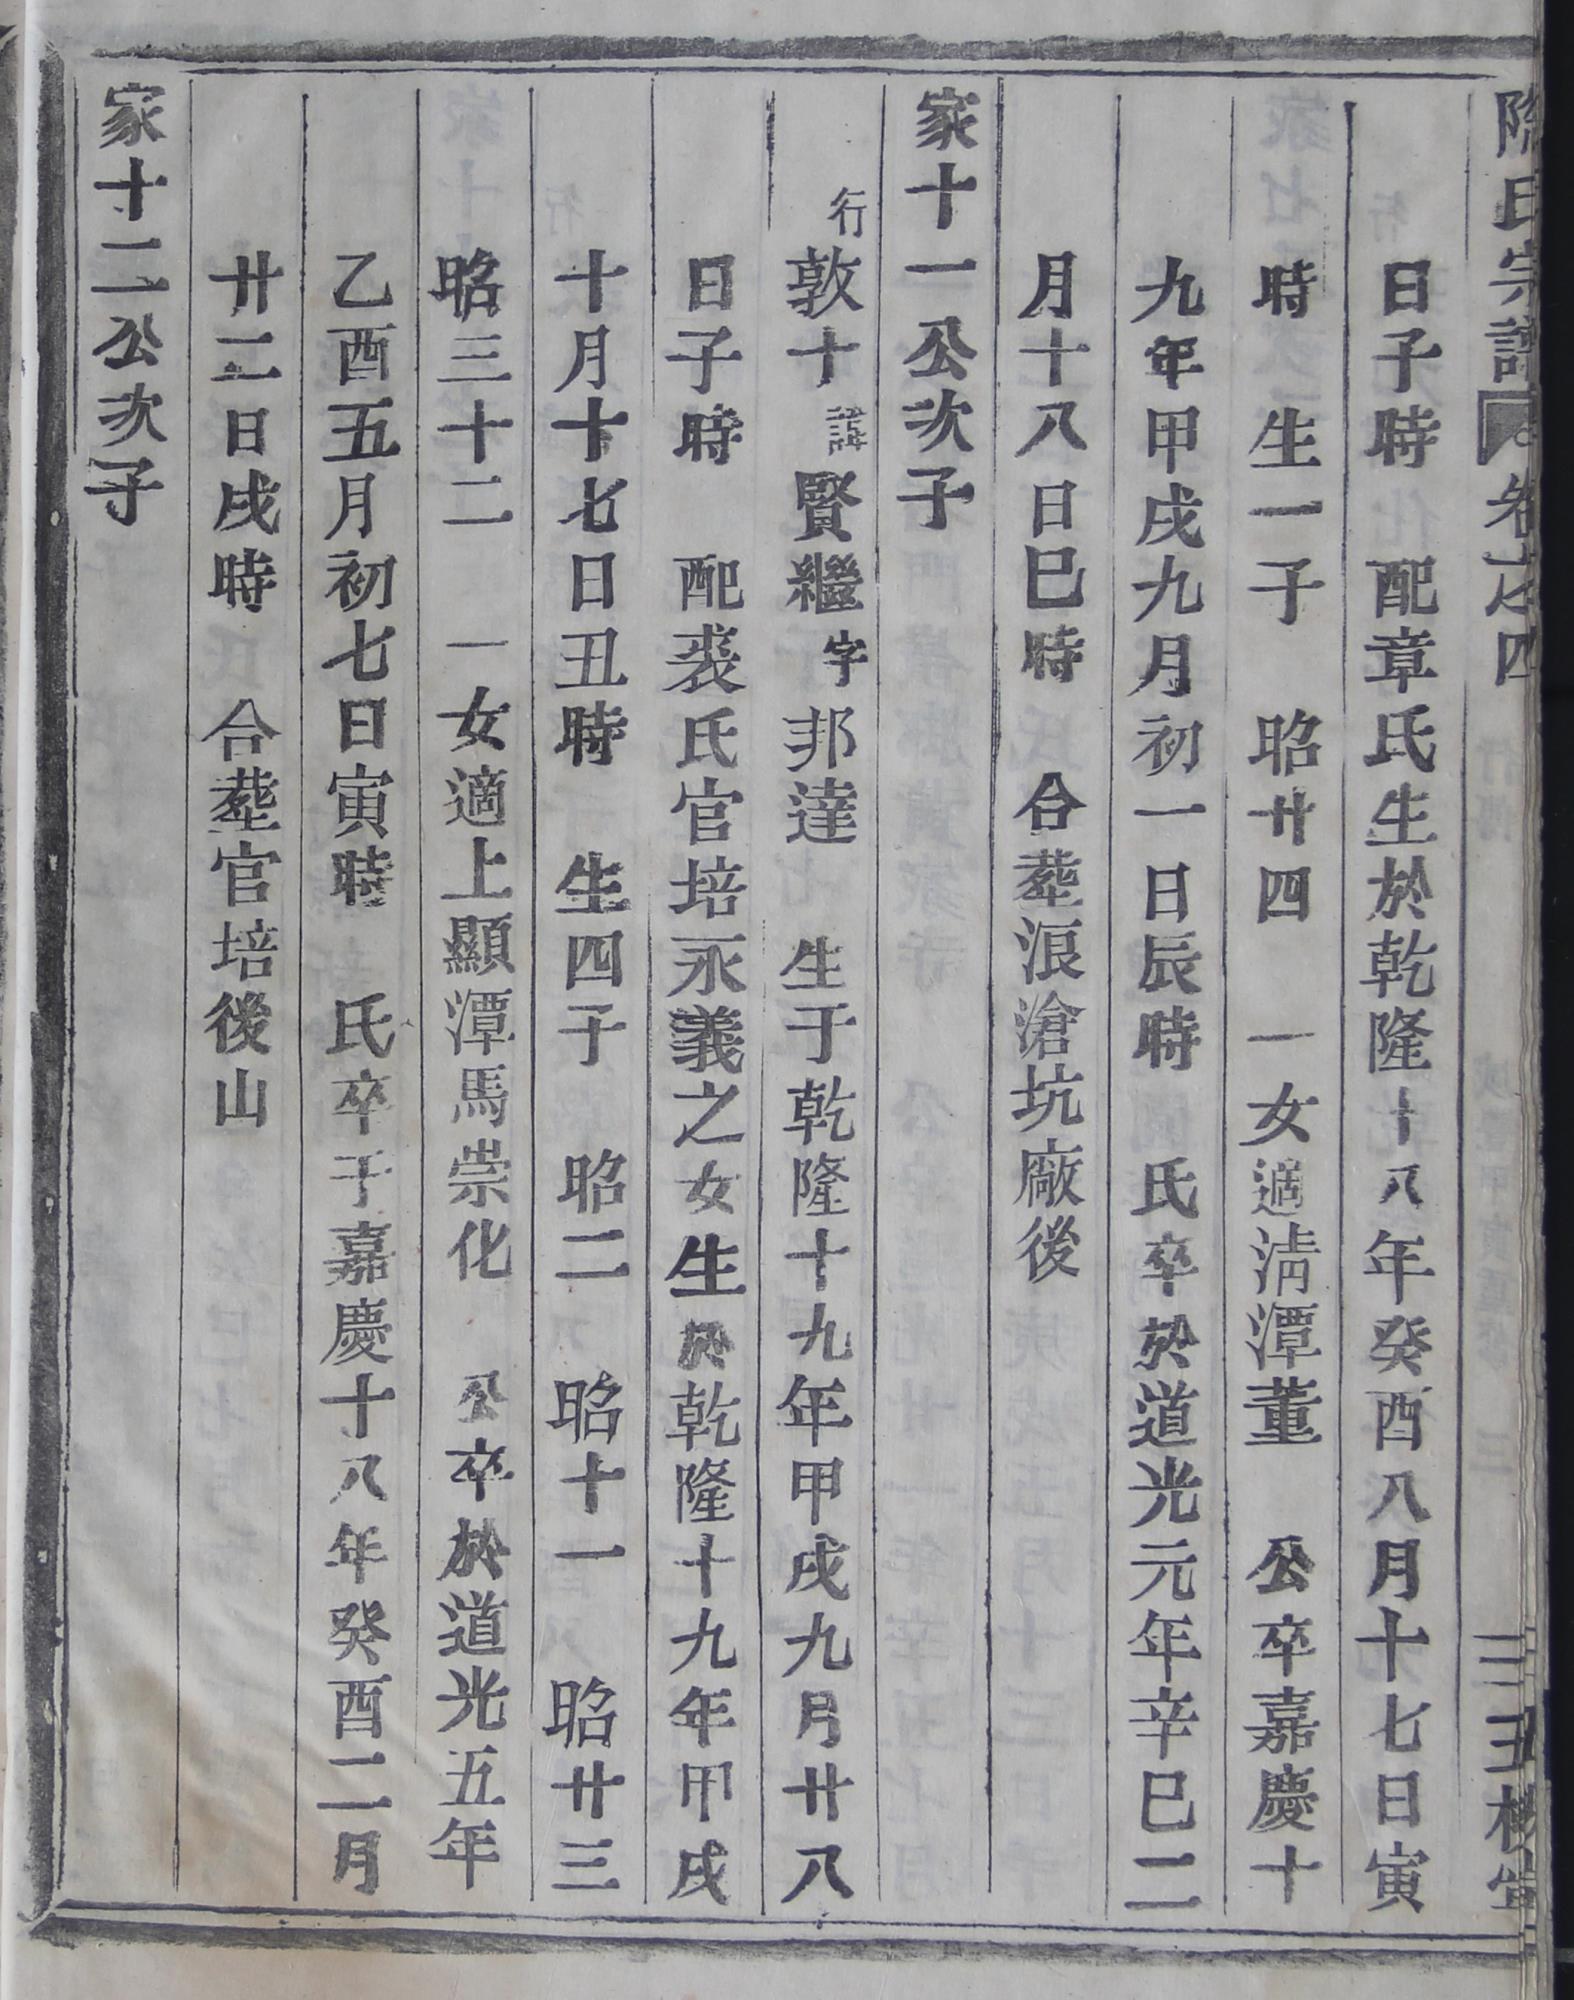 陳氏宗譜 卷之四 三五 槐堂
日子時 配章氏生於乾隆十八年癸酉八月十七日寅
時 生一子 昭廿四 一女適淸潭董 公卒嘉慶十
九年甲戌九月初一日辰時 氏卒於道光元年辛巳二
月十八日巳時 合塟浪滄坑廠後
家十一公次子
行敦十諱賢繼字邦達 生于乾隆十九年甲戌九月廿八
日子時 配裘氏官培永義之女生於乾隆十九年甲戌
十月十七日丑時 生四子 昭二 昭十一 昭廿三
昭三十二 一女適上顯潭馬崇化 公卒於道光五年
乙酉五月初七日寅時 氏卒于嘉慶十八年癸酉二月
廿二日戌時 合塟官培後山
家十二公次子